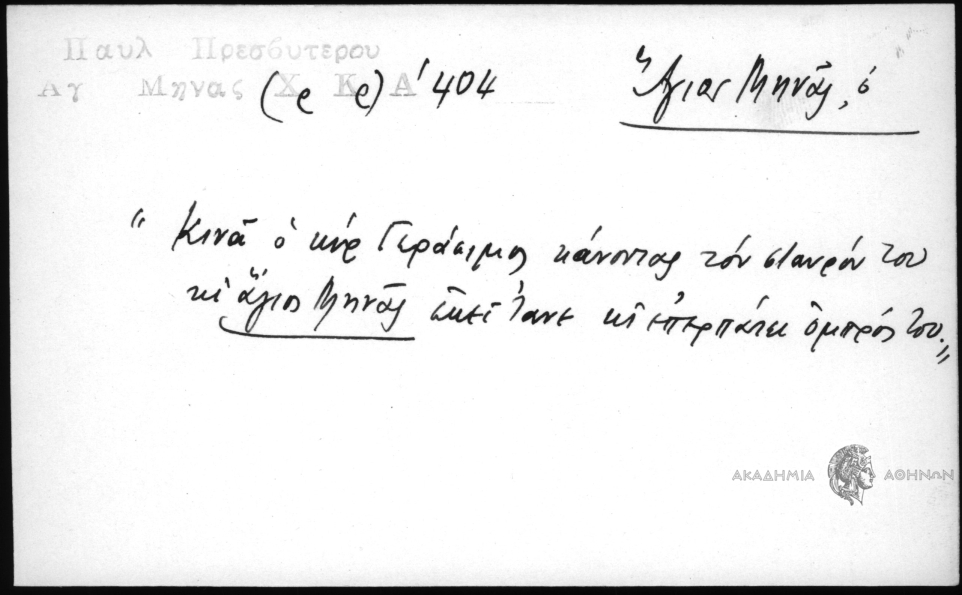 Παυλ Πρεσβυτερου
Αγ Μηνας Χ Κ Α
(ρ ρ) 404
Ἅγιος Μηνᾶς, ὁ
"Κινᾶ ὁ κύρ Γεράσιμος κάνοντας τόν σταυρόν του
κι ἅγιος Μηνᾶς ἐκεῖ ἦτανε κι ἐπερπάτει ὀμπρός του."
ΑΚΑΔΗΜΙΑ ΑΘΗΝΩΝ